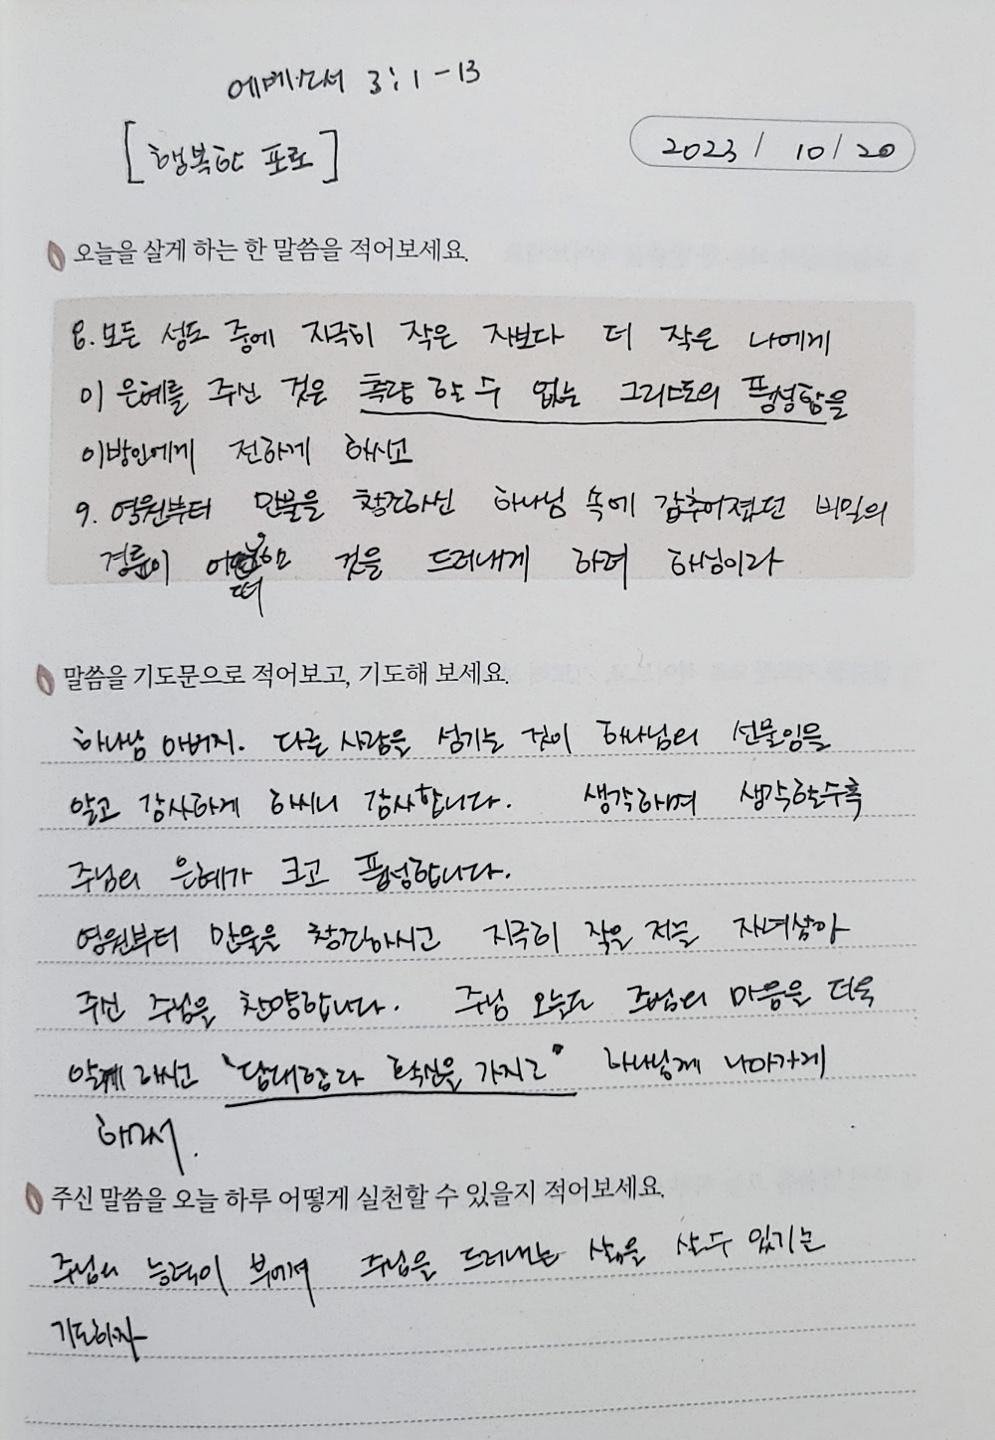 에베소서 3:1-13
[행복한 포로]
2023/ 10/20
오늘을 살게 하는 한 말씀을 적어보세요.
8. 모든 성도 중에 지극히 작은 자보다 더 작은 나에게
이 은혜를 주신 것은 측량 할 수 없는 그리스도의 풍성함을
이방인에게 전하게 하시고
9. 영원부터 만물을 창조하신 하나님 속에 감추어졌던 비밀의
경륜이 어떠한 것을 드러내게 하려 하심이라
말씀을 기도문으로 적어보고, 기도해 보세요.
하나님 아버지. 다른 사람을 섬기는 것이 하나님의 선물임을
알고 감사하게 하시니 감사합니다. 생각하며 생각할수록
주님의 은혜가 크고 풍성합니다.
영원부터 만물을 창조하시고 지극히 작은 저를 자녀삼아
주신 주님을 찬양합니다. 주님 오늘도 주님의 마음을 더욱
알게 하시고 "담대함과 확신을 가지고" 하나님께 나아가게
하소서.
주신 말씀을 오늘 하루 어떻게 실천할 수 있을지 적어보세요.
주님의 능력이 주님을 드러내는 삶을 살수 있기를
기도하자